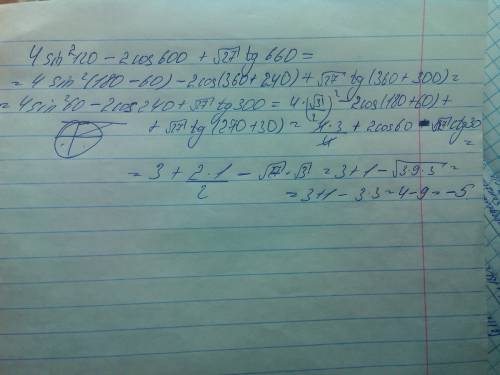 4 sin²120 − 2cos600 + √27 tg 660 =
= 4 sin²(180−60) − 2cos(360+240) + √27 tg(360+300) =
= 4sin²60 − 2cos240 + √27 tg300 = 4·(√3/2)² − 2cos(180+60) +
+ √27 tg(270+30) = 4·3/4 + 2cos60 − √27 ctg30 =
= 3 + 2·1/2 − √27·√3 = 3+1 − √3·9·3 =
= 3+1 − 3·3 = 4−9 = −5